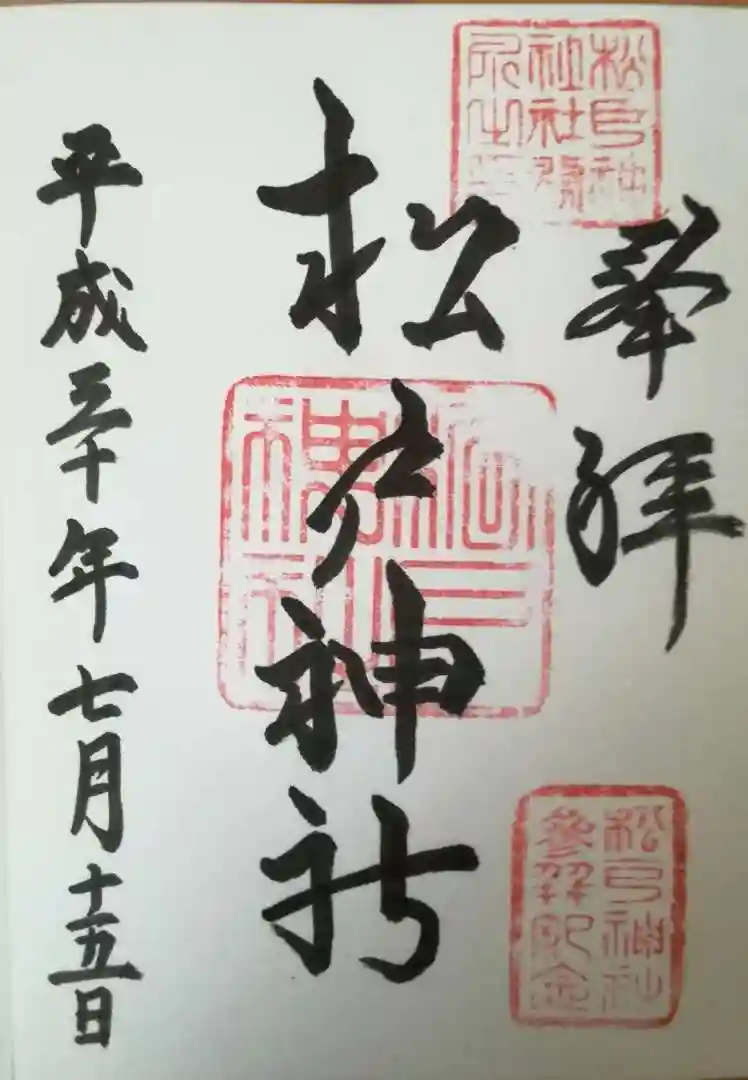 松戸神
社社務
所之印
奉拝
松戸神社
參拜記念
松戸神社
松戸
神社
平成三十年七月十五日